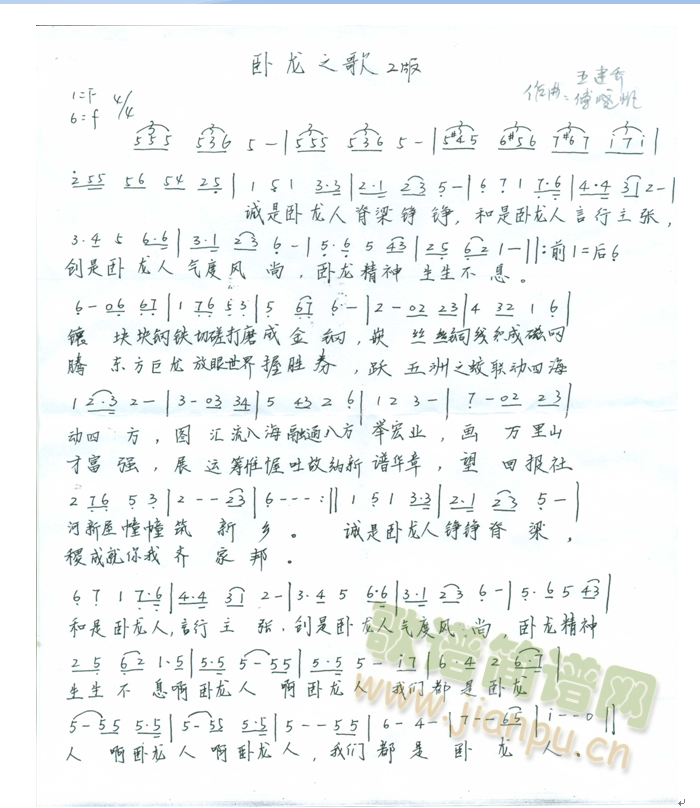 卧龙之歌 2版
1=F 4/4
6=f
作曲:
5 5 5 5 3 6 5 - | 5 5 5 5 3 6 5 - | 5 #4 5 6 #5 6 7 #6 7 i 7 i |
2 5 5 5 6 5 4 2 5 | 1 5 1 3·3 | 2·1 2 3 5 - | 6 7 1 7·6 | 4·4 3 1 2 - |
诚是卧龙人脊梁铮 铮，和是卧龙人言行主张，
3·4 5 6·6 | 3·1 2 3 6 - | 5·6 5 4 3 | 2 5 6 2 1 - ||: 前1=后6
创是卧龙人气度风 尚，卧龙精神 生生不 息。
6 - 0 6 6 7 | 1 7 6 5 3 | 5 6 7 6 - | 2 - 0 2 2 3 | 4 3 2 1 6 |
镶 块块钢铁切磋打磨成金 钢，嵌 丝丝铜线和成磁网
腾 东方巨龙放眼世界握胜券，跃 五洲之蛟联动四海
1 2·3 2 - | 3 - 0 3 3 4 | 5 4 3 2 6 | 1 2 3 - | 7 - 0 2 2 3 |
动四 方，图 汇流入海融通八方 举宏业，画 万里山
才富 强，展 运筹帷幄吐故纳新 谱华章，望 回报社
2 7 6 5 3 | 2 - - 2 3 | 6 - - - :|| 1 5 1 3·3 | 2·1 2 3 5 - |
河新厦幢幢筑 新 乡。 诚是卧龙人铮铮脊 梁，
稷成就你我齐 家 邦。
6 7 1 7·6 | 4·4 3 1 2 - | 3·4 5 6·6 | 3·1 2 3 6 - | 5·6 5 4 3 |
和是卧龙人,言行 主 张.创是卧龙人气度风 尚，卧龙精神
2 5 6 2 1·5 | 5·5 5 - 5 5 | 5·5 5 - i 7 | 6·4 2 6·7 |
生生 不 息啊卧龙人 啊卧龙人 我们都 是 卧龙
5 - 5 5 5·5 | 5 - 5 5 5·5 | 5 - - 5 5 | 6 - 4 - | 7 - - 6 5 | i - - 0 ||
人 啊卧龙人啊卧龙人，我们都 是 卧 龙 人.
歌谱简谱网
www.jianpu.cn